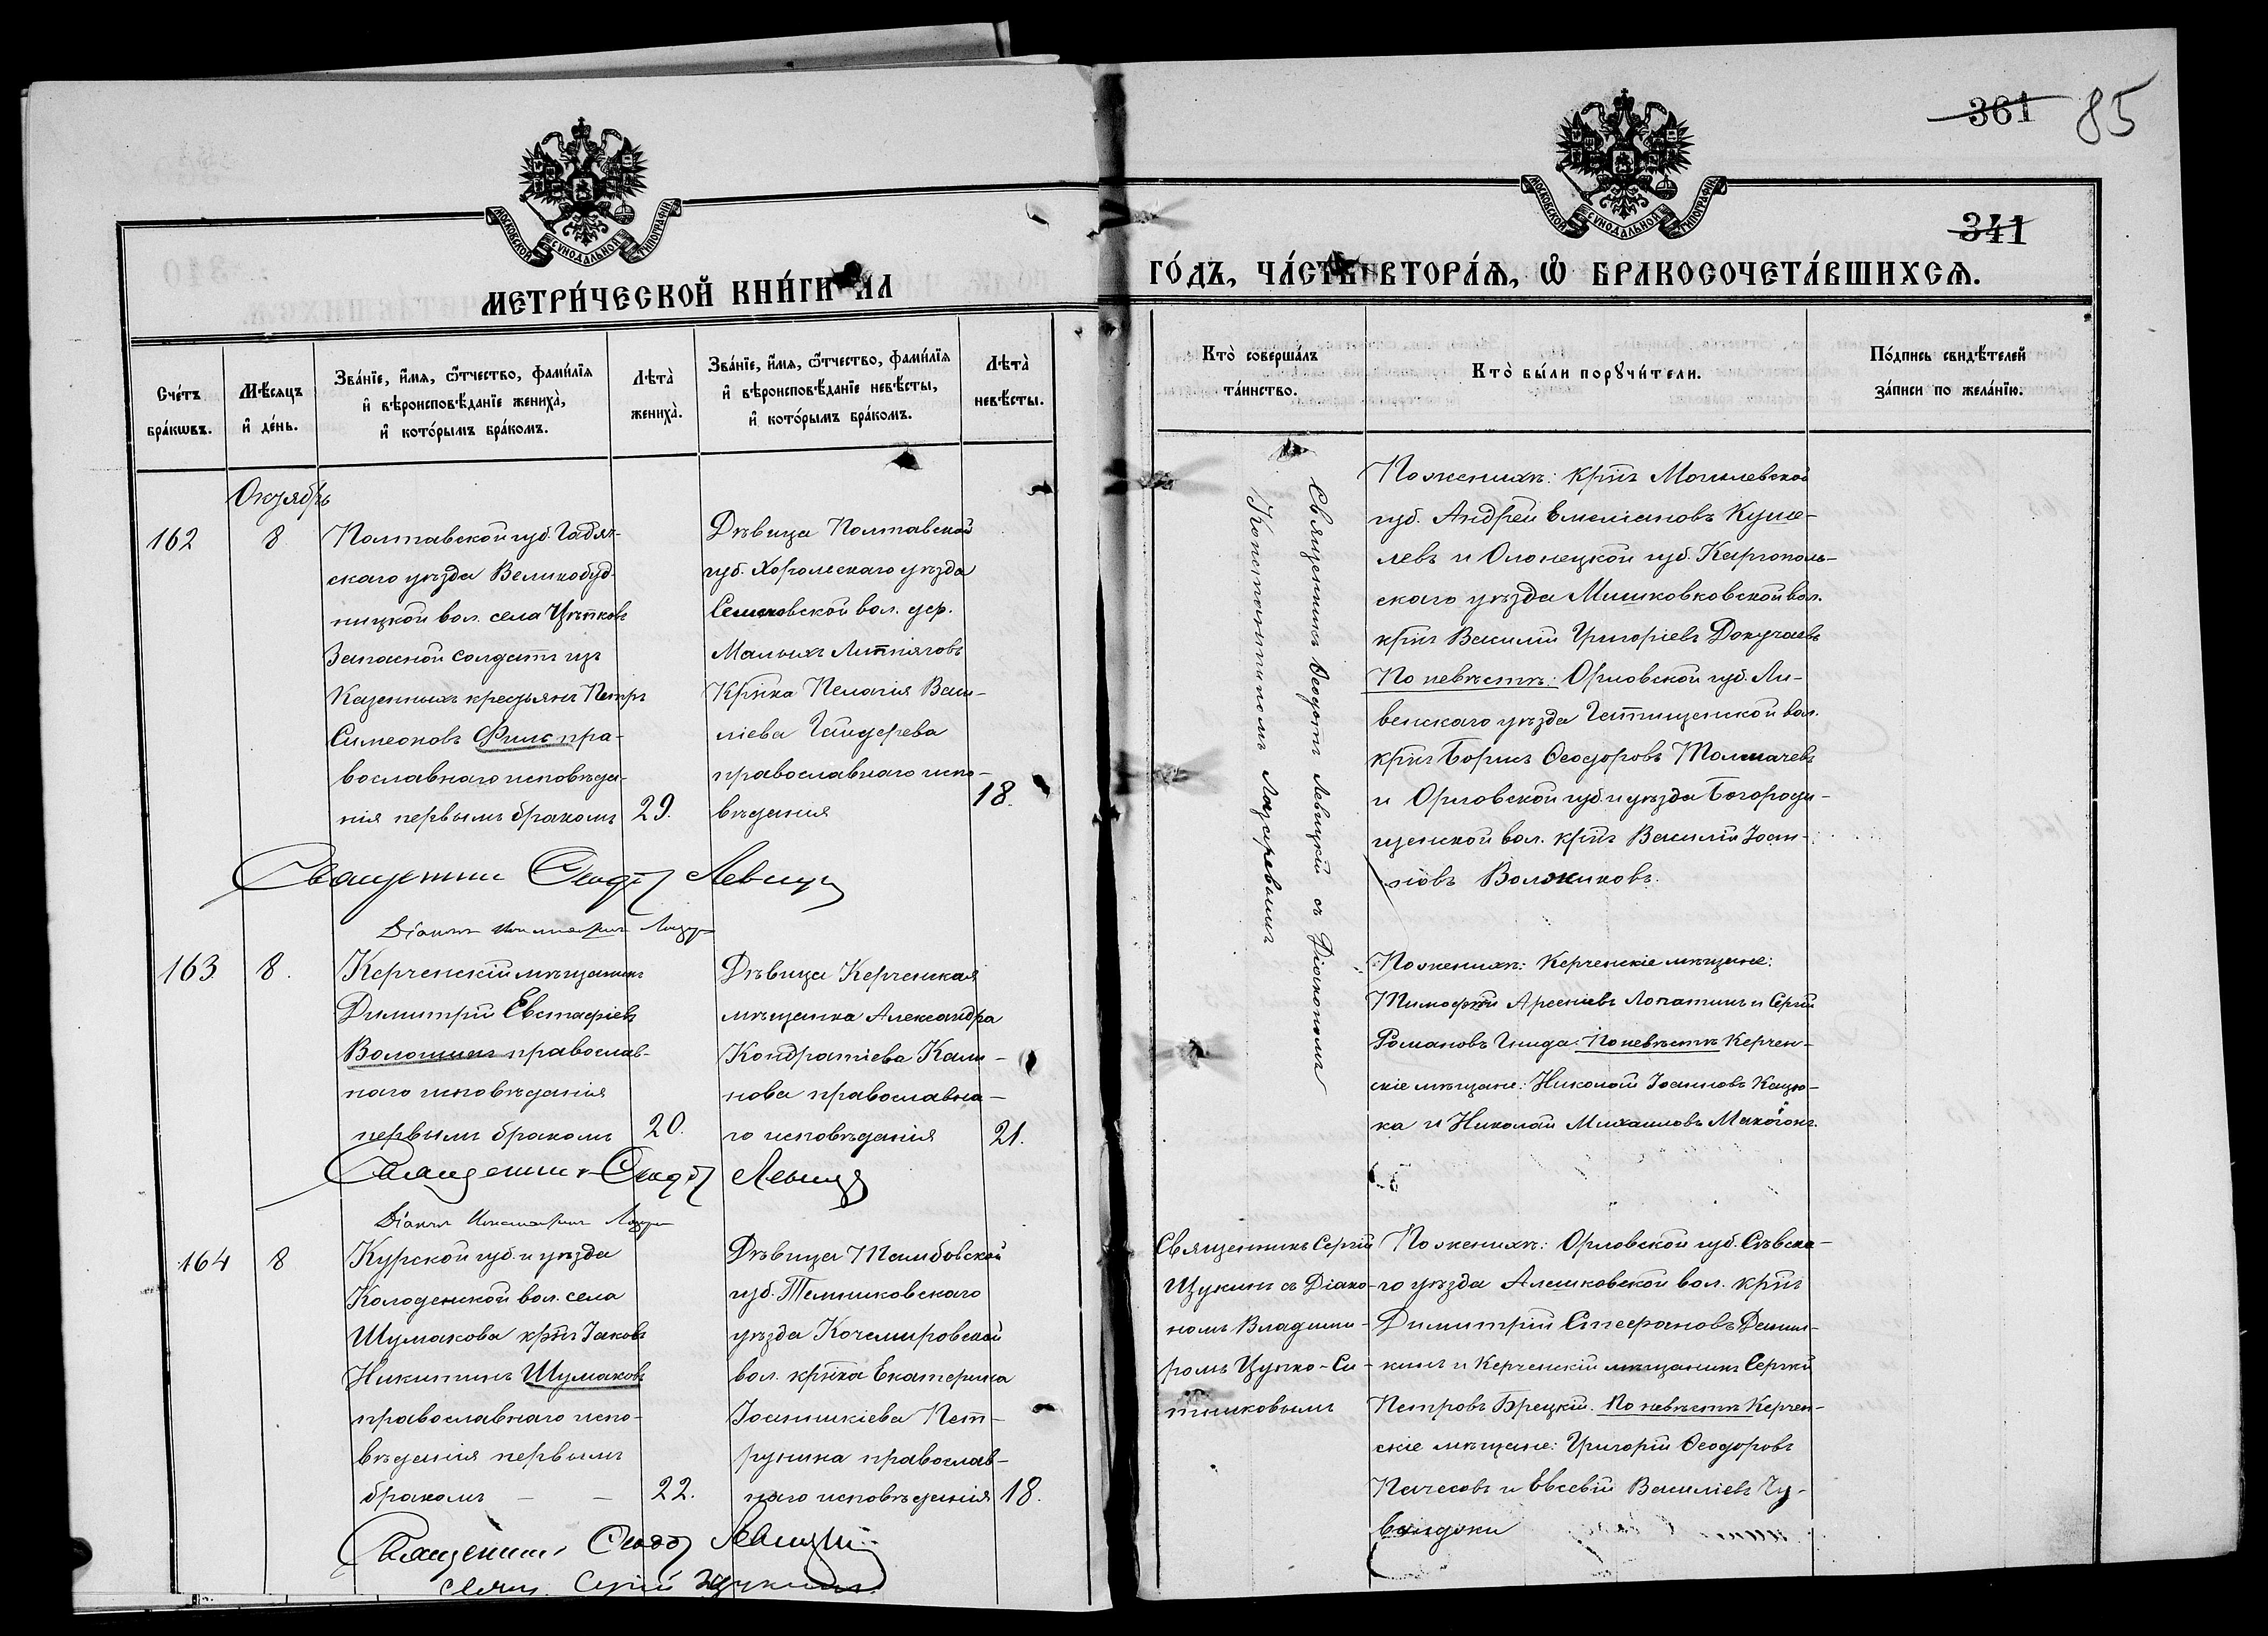 361 85
341
МОСКОВСКОЙ СУНОДАЛЬНОЙ ТИПОГРАФІИ
МОСКОВСКОЙ СУНОДАЛЬНОЙ ТИПОГРАФІИ
МЕТРИ́ЧЕСКОЙ КНИ́ГИ НА
ГО́ДЪ, ЧА́СТЬ ВТОРА́Ѧ, Ѽ БРАКОСОЧЕТА́ВШИХСѦ.
Сче́тъ бра́кѡвъ.
Мѣ́сяцъ и҆ де́нь.
Зва́нїе, и҆́мѧ, ѻ҆́тчество, фами́лїѧ и҆ вѣроисповѣ́данїе жениха̀, и҆ кото́рымъ бра́комъ.
Лѣта̀ жениха̀.
Зва́нїе, и҆́мѧ, ѻ҆́тчество, фами́лїѧ и҆ вѣроисповѣ́данїе невѣ́сты, и҆ кото́рымъ бра́комъ.
Лѣта̀ невѣ́сты.
Кто̀ соверша́лъ та́инство.
Кто̀ бы́ли порꙋчи́тели.
По́дпись свидѣ́телей за́писи по жела́нїю.
Октябрь
162
8
Полтавской губ. Гадяч-
скаго уѣзда Великобуд-
ницкой вол. села Цѣпковъ
Запасной солдатъ изъ
Казенныхъ крестьянъ Петръ
Симеоновъ Филь пра-
вославнаго исповѣда-
нія первымъ бракомъ
29.
Дѣвица Полтавской
губ. Хорольскаго уѣзда
вол. дер.
Малыхъ Липняговъ
Крѣнка Пелагія Васи-
ліева
православнаго испо-
вѣданія
18.
Священникъ Ѳеодотъ Левицкій съ Діакономъ
Константиномъ Лазаревымъ
По женихѣ: крѣнъ Могилевской
губ. Андрей Емеліановъ Куше-
левъ и Олонецкой губ. Каргополь-
скаго уѣзда Мишковковской вол.
крнъ Василій Григоріевъ Докучаевъ
По невѣстѣ: Орловской губ. Ли-
венскаго уѣзда вол.
крнъ Борисъ Ѳеодоровъ Толмачевъ
и Орловской губ. и уѣзда Богороди-
щенской вол. крнъ Василій Іоан-
новъ Волжиковъ.
Священникъ Ѳеодотъ Левицкій
Діаконъ Константинъ Лазар
163
8.
Керченскій мѣщанинъ
Димитрій Евстафіевъ
Волошинъ православ-
наго исповѣданія
первымъ бракомъ
20.
Дѣвица Керченская
мѣщанка Александра
Кондратіева Кали-
нова православна-
го исповѣданія
21.
По женихѣ: Керченскіе мѣщане:
Тимофей Арсеніевъ Лопатинъ и Сергій
Романовъ Гнида. По невѣстѣ Керчен-
скіе мѣщане: Николай Іоанновъ Кацю-
ка и Николай Михаиловъ Макогонъ.
Священникъ Ѳеодотъ Левицкій
Діаконъ Константинъ Лазар
164
8
Курской губ. и уѣзда
Колоденской вол. села
Шумакова крнъ Іаковъ
Никитинъ Шумаковъ
православнаго испо-
вѣданія первымъ
бракомъ — —
22.
Дѣвица Тамбовской
губ. Темниковскаго
уѣзда Кочемировской
вол. крнка Екатерина
Іоанникіева Пет-
рунина православ-
наго исповѣданія
18.
Священникъ Сергій
Щукинъ съ Діако-
номъ Владими-
ромъ Цупко-Си-
тниковымъ
По женихѣ: Орловской губ. Сѣвска-
го уѣзда Алешковской вол. крнъ
Димитрій Стефановъ Деники-
кинъ и Керченскій мѣщанинъ Сергій
Петровъ Брецкій. По невѣстѣ Керчен-
скіе мѣщане: Григорій Ѳеодоровъ
Пачесовъ и Евсевій Василіевъ Чу-
Священникъ Ѳеодотъ Левицкій
свящ. Сергій Щукинъ.